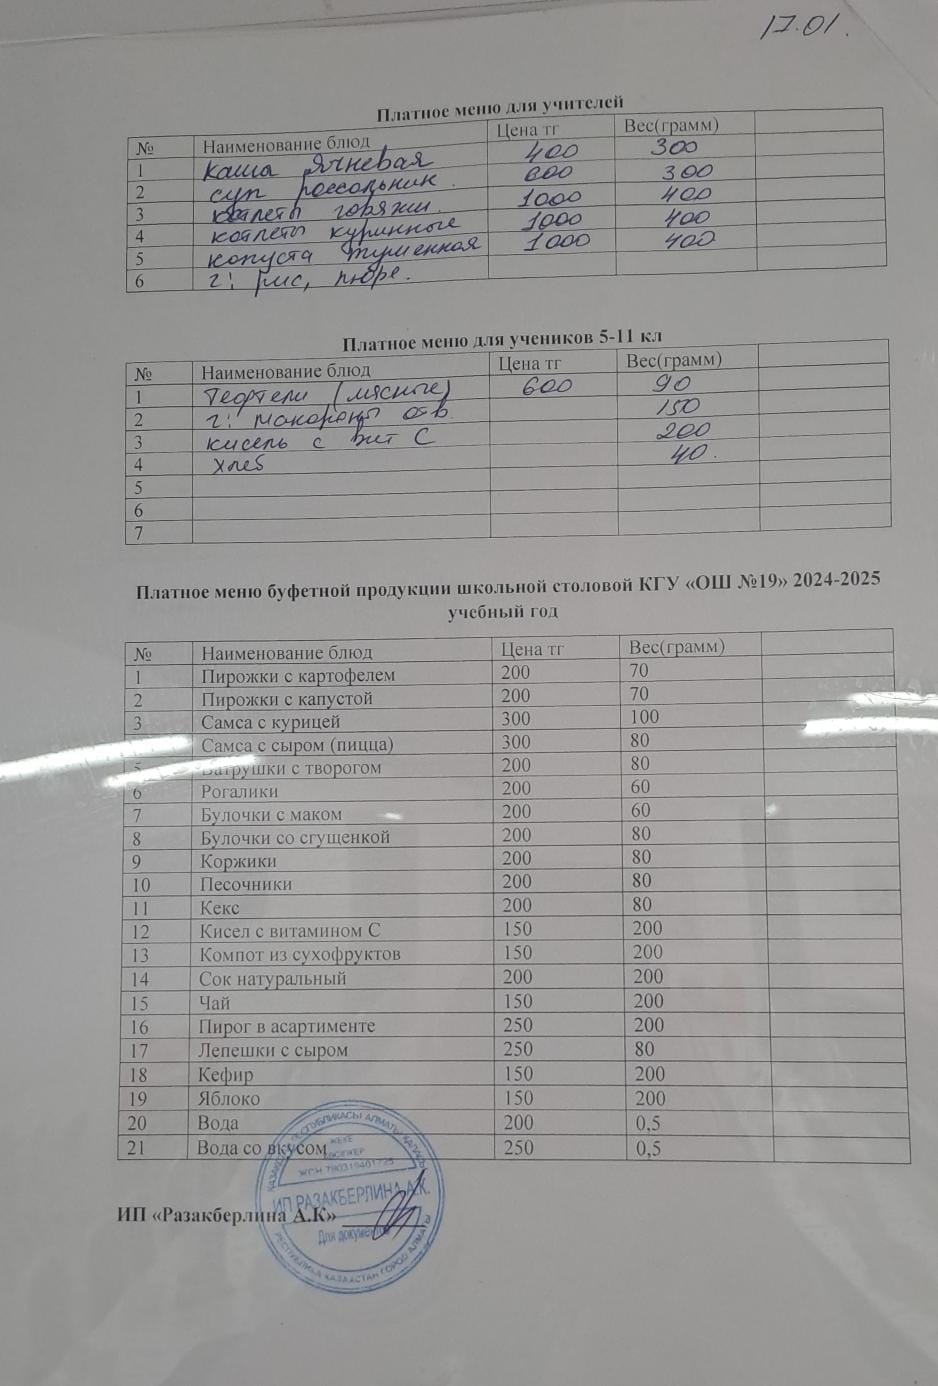 17.01.
Платное меню для учителей
№ Наименование блюд Цена тг Вес(грамм)
1 Каша Ячневая 400 300
2 суп россольник. 600 300
3 котлеты горяжи. 1000 400
4 котлеты куринные 1000 400
5 капуста тушенная 1000 400
6 г: рис, пюре.
Платное меню для учеников 5-11 кл
№ Наименование блюд Цена тг Вес(грамм)
1 Тефтели (мясные) 600 90
2 г: макароны отв. 150
3 кисель с вит С 200
4 хлеб 40.
5
6
7
Платное меню буфетной продукции школьной столовой КГУ «ОШ №19» 2024-2025
учебный год
№ Наименование блюд Цена тг Вес(грамм)
1 Пирожки с картофелем 200 70
2 Пирожки с капустой 200 70
3 Самса с курицей 300 100
Самса с сыром (пицца) 300 80
5 Ватрушки с творогом 200 80
6 Рогалики 200 60
7 Булочки с маком 200 60
8 Булочки со сгущенкой 200 80
9 Коржики 200 80
10 Песочники 200 80
11 Кекс 200 80
12 Кисел с витамином С 150 200
13 Компот из сухофруктов 150 200
14 Сок натуральный 200 200
15 Чай 150 200
16 Пирог в асартименте 250 200
17 Лепешки с сыром 250 80
18 Кефир 150 200
19 Яблоко 150 200
20 Вода 200 0,5
21 Вода со вкусом 250 0,5
ИП «Разакберлина А.К»
ҚАЗАҚСТАН РЕСПУБЛИКАСЫ АЛМАТЫ ҚАЛАСЫ
ЖЕКЕ
КӘСІПКЕР
ИП РАЗАКБЕРЛИНА А.К.
Для документов
РЕСПУБЛИКА КАЗАХСТАН ГОРОД АЛМАТЫ